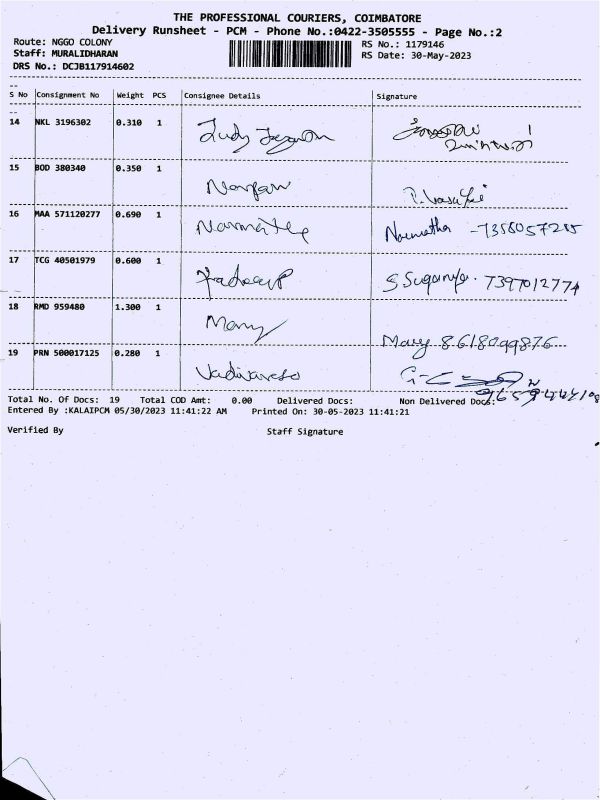 THE PROFESSIONAL COURIERS, COIMBATORE
Delivery Runsheet - PCM - Phone No.:0422-3505555 - Page No.:2
Route: NGGO COLONY
RS No.: 1179146
Staff: MURALIDHARAN
RS Date: 30-May-2023
DRS No.: DCJB117914602
S No Consignment No Weight PCS Consignee Details Signature
14 NKL 3196302 0.310 1 Judy
15 BOD 380340 0.350 1
16 MAA 571120277 0.690 1 Narmatha Narmatha
17 TCG 40501979 0.600 1 Pradeep P S Suganya. 7397012774
18 RMD 959480 1.300 1 Mary Mary 8618099876
19 PRN 500017125 0.280 1
Total No. Of Docs: 19 Total COD Amt: 0.00 Delivered Docs: Non Delivered Docs:
Entered By :KALAIPCM 05/30/2023 11:41:22 AM Printed On: 30-05-2023 11:41:21
Verified By Staff Signature